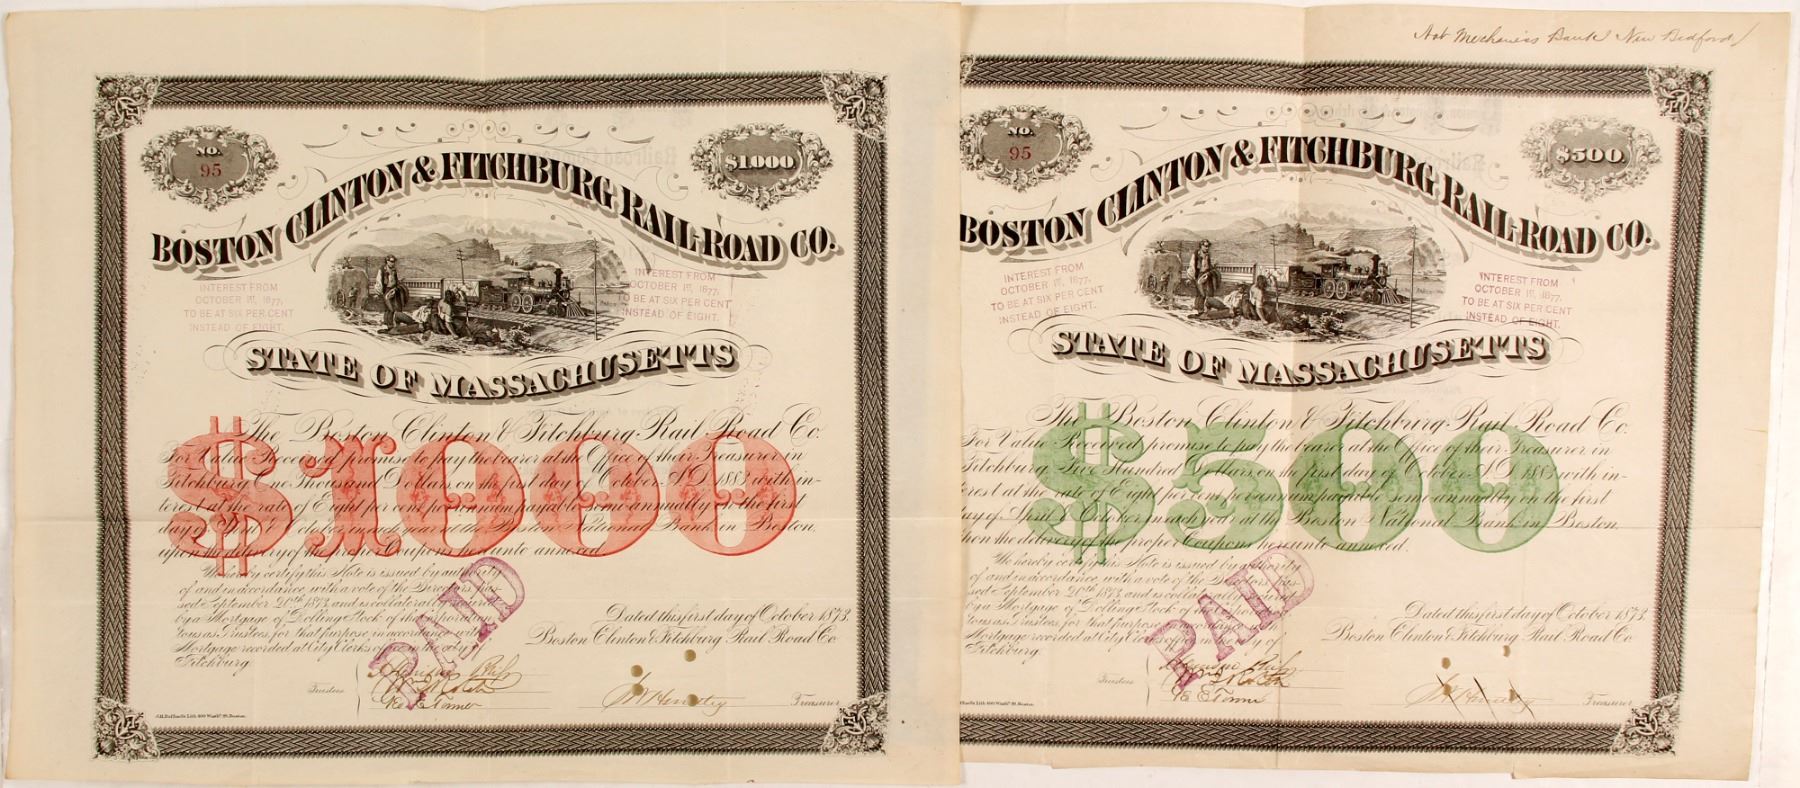 NO.
95
$1000
BOSTON CLINTON & FITCHBURG RAIL-ROAD CO.
INTEREST FROM
OCTOBER 1st, 1877,
TO BE AT SIX PER CENT
INSTEAD OF EIGHT.
INTEREST FROM
OCTOBER 1st, 1877,
TO BE AT SIX PER CENT
INSTEAD OF EIGHT.
STATE OF MASSACHUSETTS
$1000
The Boston Clinton & Fitchburg Rail Road Co.
For Value Received promise to pay the bearer at the Office of their Treasurer in
Fitchburg One Thousand Dollars, on the first day of October A.D. 1883 with in-
terest at the rate of Eight per cent per annum, payable semi-annually on the first
day of April & October in each year at the Boston National Bank in Boston,
upon the delivery of the proper Coupons hereunto annexed.
We hereby certify this Note is issued by authority
of and in accordance, with a vote of the Directors, pas-
sed September 20th 1873, and is collaterally secured
by a Mortgage of Rolling Stock of the corporation
to us as Trustees, for that purpose, in accordance with
Mortgage recorded at City Clerks office in the city of
Fitchburg.
PAID
Dated this first day of October 1873.
Boston Clinton & Fitchburg Rail Road Co
Trustees
Treasurer
J.H. Bufford's Lith. 490 Washn. St. Boston.
Mechanics Bank New Bedford
NO.
95
$500.
BOSTON CLINTON & FITCHBURG RAIL-ROAD CO.
INTEREST FROM
OCTOBER 1st, 1877,
TO BE AT SIX PER CENT
INSTEAD OF EIGHT.
INTEREST FROM
OCTOBER 1st, 1877,
TO BE AT SIX PER CENT
INSTEAD OF EIGHT.
STATE OF MASSACHUSETTS
$500
The Boston Clinton & Fitchburg Rail Road Co.
For Value Received promise to pay the bearer at the Office of their Treasurer in
Fitchburg, Five Hundred Dollars, on the first day of October A.D. 1883 with in-
terest at the rate of Eight per cent, per annum, payable semi-annually on the first
day of April & October in each year at the Boston National Bank in Boston,
upon the delivery of the proper Coupons hereunto annexed.
We hereby certify this Note is issued by authority
of and in accordance, with a vote of the Directors pas-
sed September 20th 1873, and is collaterally secured
by a Mortgage of Rolling Stock of the corporation
to us as Trustees, for that purpose, in accordance with
Mortgage recorded at City Clerks office in the city of
Fitchburg.
PAID
Dated this first day of October 1873.
Boston Clinton & Fitchburg Rail Road Co
Trustees
Treasurer
Lith. 490 Washn. St. Boston.